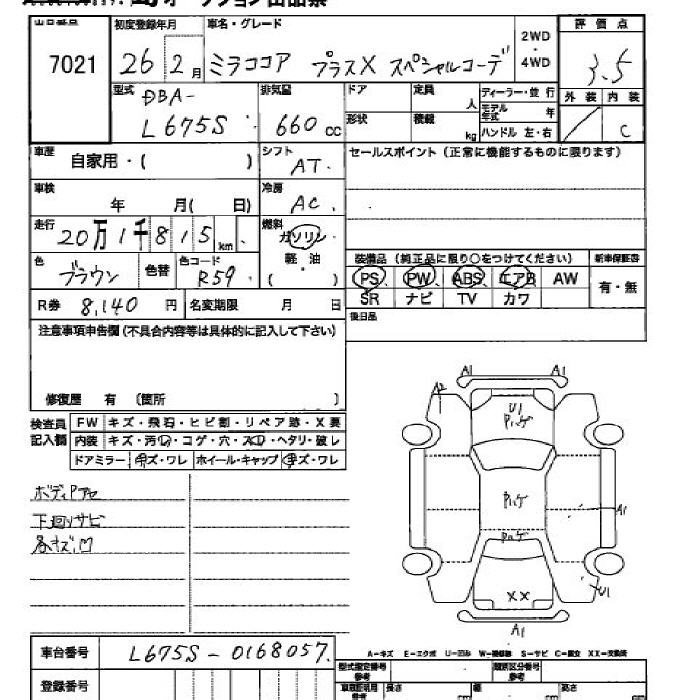 出品番号 初度登録年月 車名・グレード 2WD・4WD 評価点
7021 26 2月 ミラココア プラスX スペシャルコーデ 3.5
型式 DBA- L675S 排気量 660 cc ドア 定員 人 ディーラー・並行 外装 内装
形状 積載 kg モデル年式 年 ハンドル 左・右 C
車歴 自家用・( ) シフト AT. セールスポイント(正常に機能するものに限ります)
車検 年 月( 日) 冷房 AC.
走行 20万1千815 km 燃料 ガソリン 軽・油 ( )
色 ブラウン 色替 色コード R59 装備品(純正品に限り○をつけてください) 新車保証書
PS PW ABS エアB AW 有・無
R券 8,140 円 名変期限 月 日 SR ナビ TV カワ
後日品
注意事項申告欄(不具合内容等は具体的に記入して下さい)
修復歴 有 (箇所 )
検査員記入欄 FW キズ・飛石・ヒビ割・リペア跡・X要
内装 キズ・汚れ・コゲ・穴・スレ・ヘタリ・破レ
ドアミラー キズ・ワレ ホイール・キャップ キズ・ワレ
下回りサビ
A1 A1
A2
U1
Pハゲ
Pハゲ
A1
Pハゲ
XX
U1
A1
A-キズ E-エクボ U-凹み W-補修跡 S-サビ C-腐食 XX-交換済
車台番号 L675S-0168057.
型式指定番号 参考 類別区分番号 参考
登録番号
長さ 幅 高さ